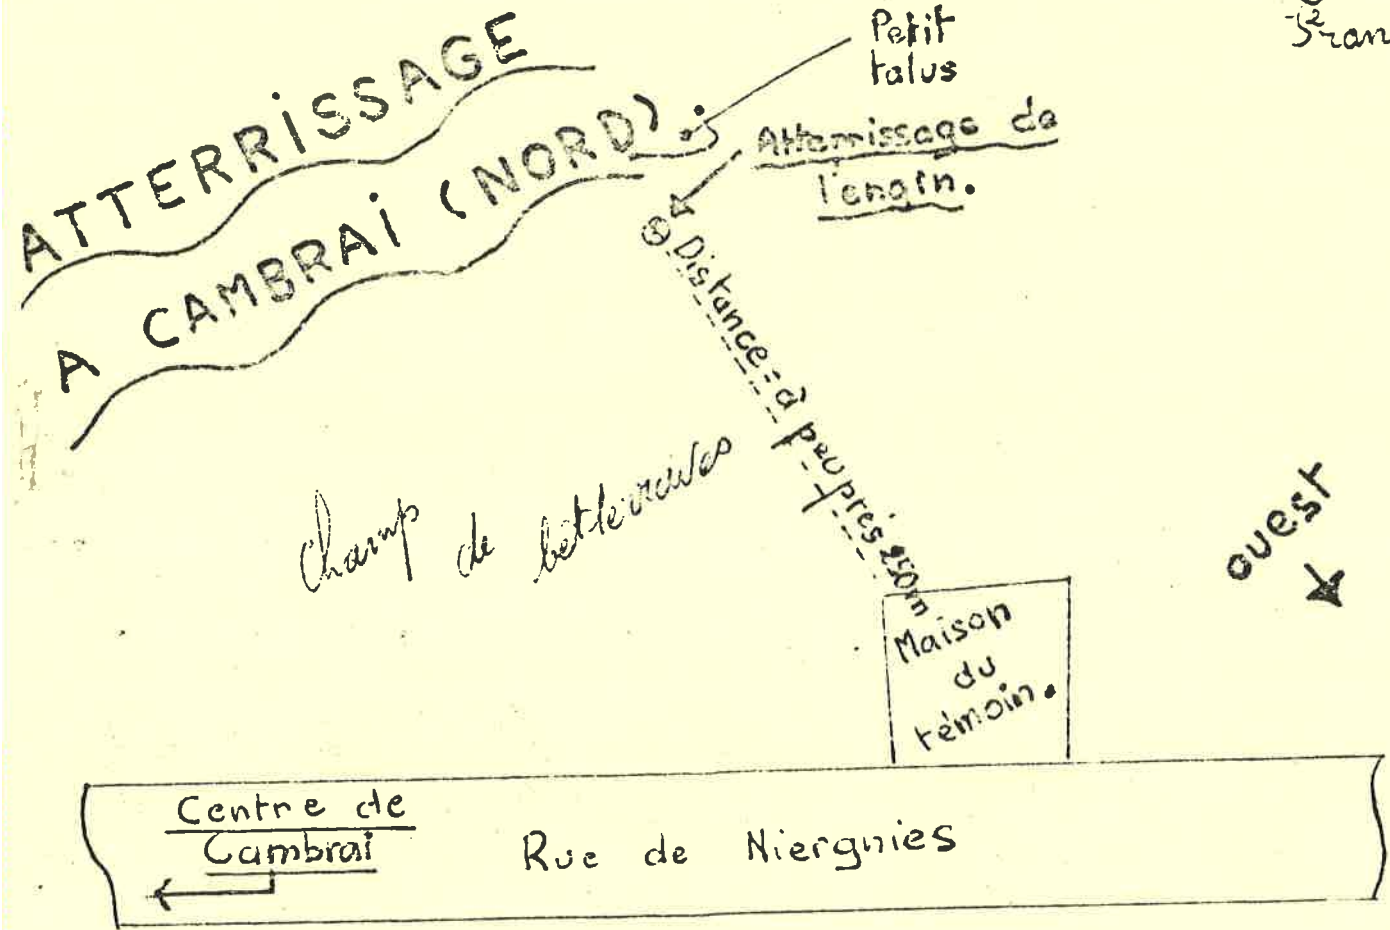 ATTERRISSAGE
A CAMBRAI (NORD)
Petit
talus
Atterrissage de
l'engin.
Distance: à peu près 250m
Champ de betteraves
ouest
Maison
du
témoin.
Centre de
Cambrai
Rue de Niergnies